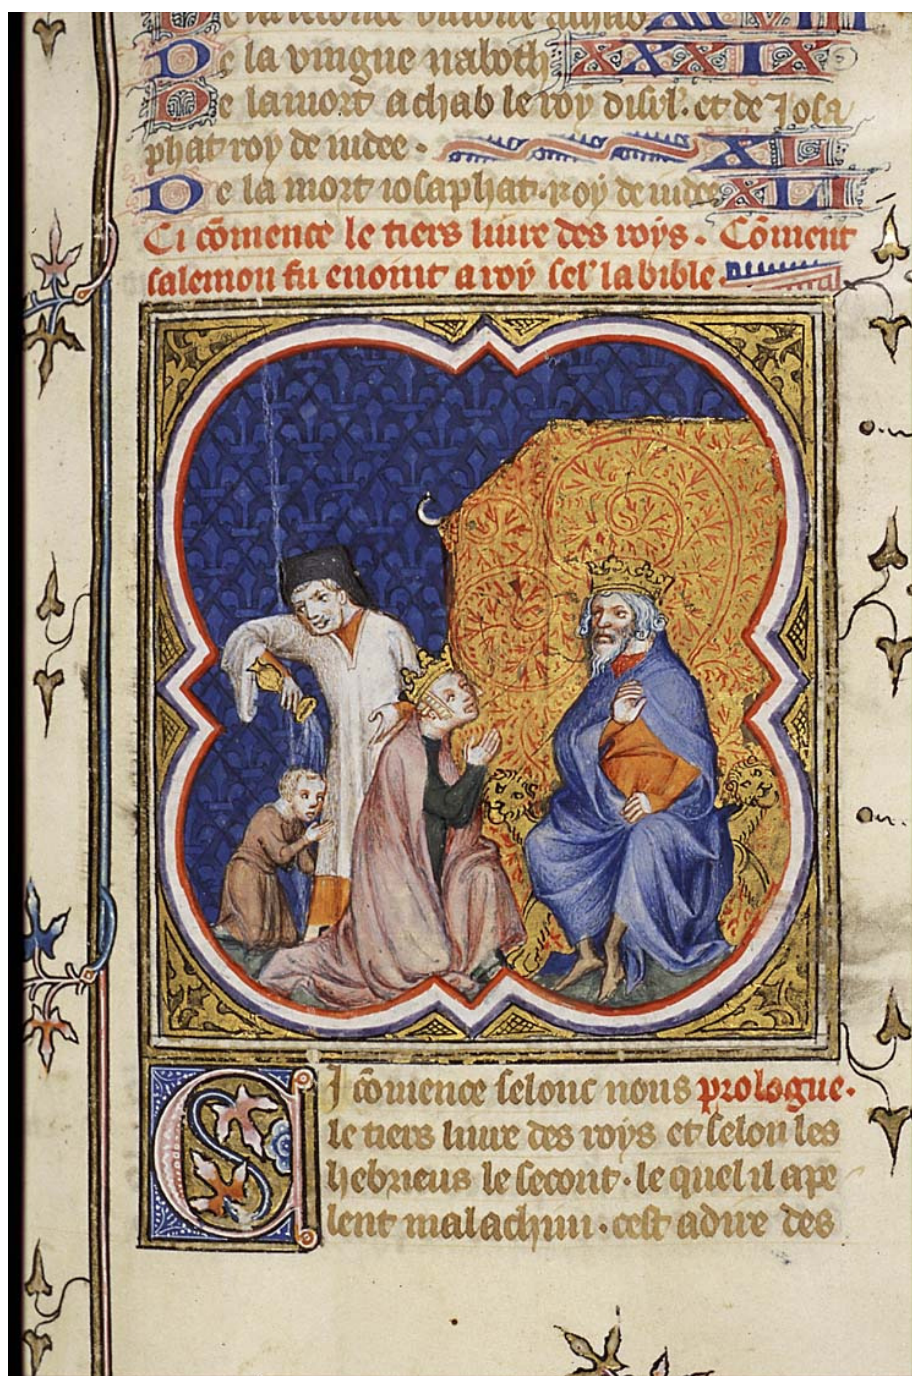 De la vingue naboth XXXIX
De la mort achab le roy disrl. et de Josa
phat roy de iudee . XL
De la mort iosaphat . roy de iudee XLI
Ci cōmence le tiers liure des roys . Cōment
salemon fu enoint a roy sel' la bible
Ci cōmence selonc nous prologue .
le tiers liure des roys et selon les
hebrieus le secont . le quel il ape
lent malachim . cest adire des